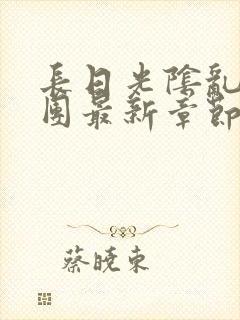 長日光陰亂
團最新章節
蔡曉東